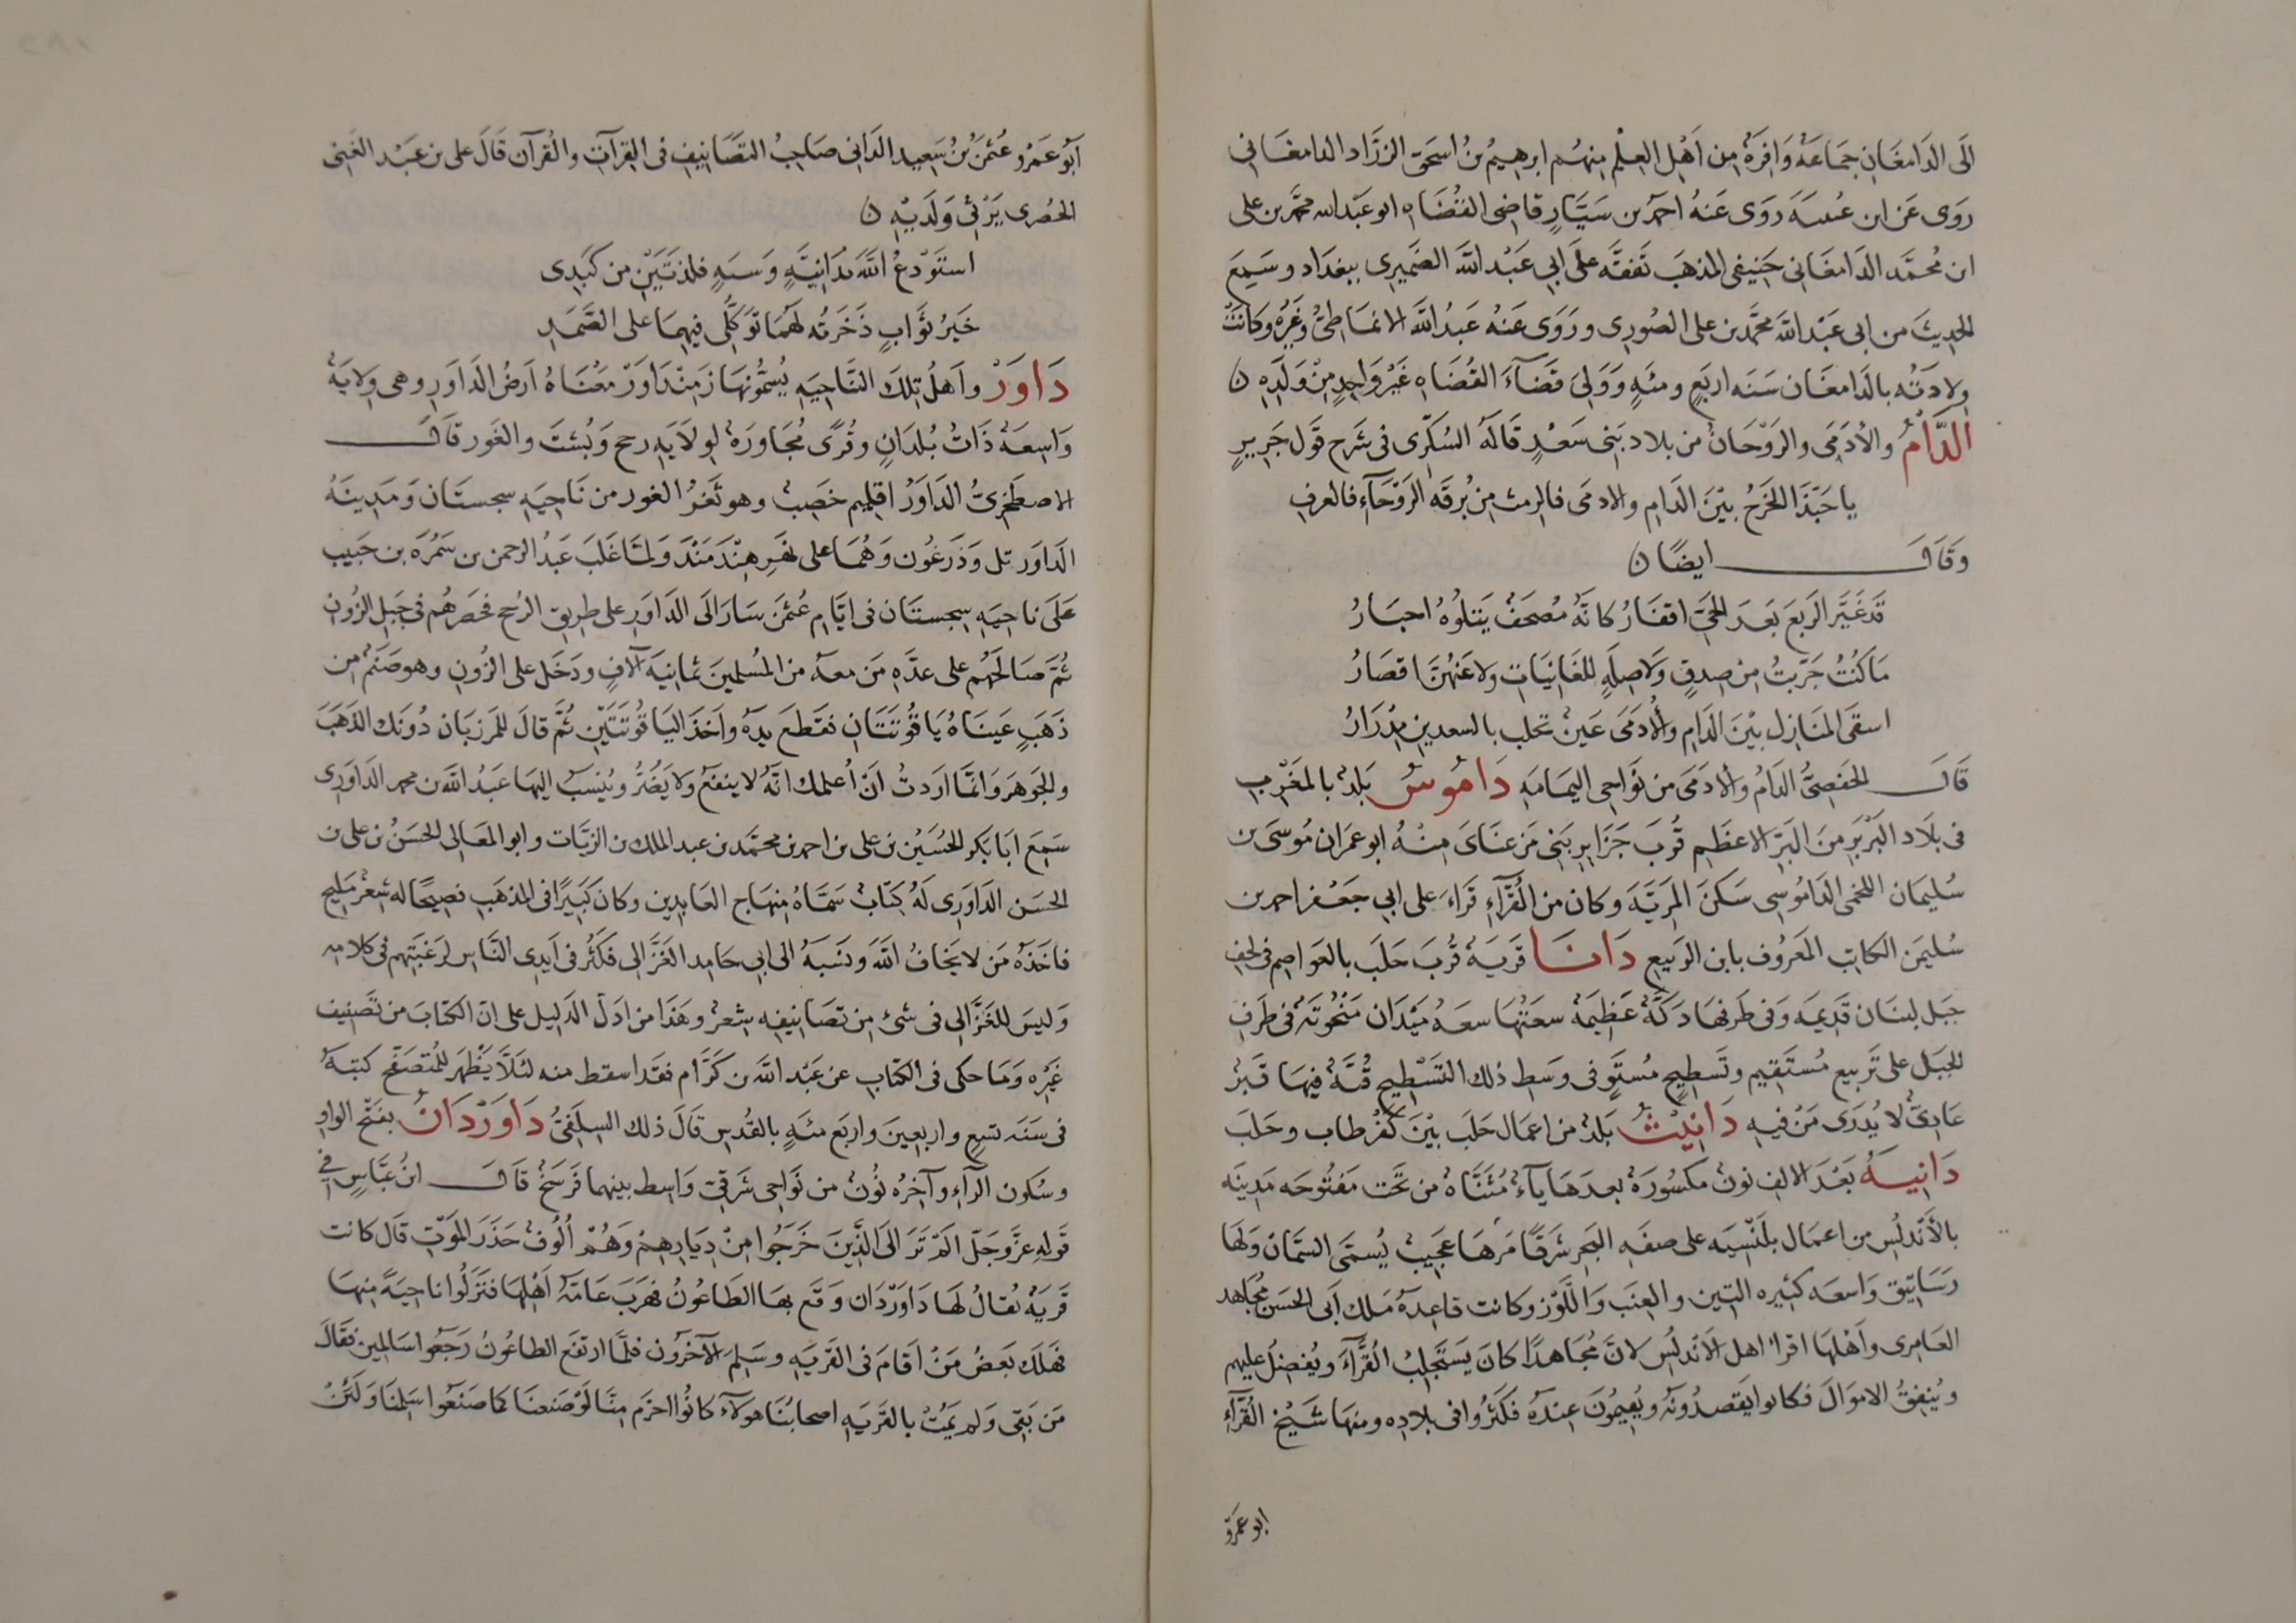 الى الدامغان جماعة وافرة من اهل العلم منهم ابرهيم بن اسحق الزراد الدامغاني
روى عن ابن عيينه روى عنه احمد بن سيار قاضى القضاه ابو عبد الله محمد بن على
ابن محمد الدامغانى حنيفى المذهب تفقه على ابى عبد الله الصميرى ببغداد وسمع
الحديث من ابى عبد الله محمد بن على الصورى وروى عنه عبد الله الانماطى وغيره وكانت
ولادته بالدامغان سنه اربع ومئه وولى قضآء القضاه غير واحد من ولده ن
الدام والادمى والروحان من بلاد بنى سعد قاله السكرى فى شرح قول جرير
يا حبذا الخرج بين الدام والادمى فالرمث من برقه الروحآء فالغرف
وقال ايضًا ن
قد غير الربع بعد الحى اقفار كانه مصحف يتلوه احبار
ما كنت جربت من صدق ولا صله للغانيات ولا عنهن اقصار
اسقى المنازل بين الدام والادمى عين تحلب بالسعدين مدرار
قال الحفصى الدام والادمى من نواحى اليمامه داموس بلد بالمغرب
فى بلاد البربر من البر الاعظم قرب جزاير بنى مزغناى منه ابو عمران موسى بن
سليمان اللخمى الداموسى سكن المريه وكان من القرآء قراء على ابى جعفر احمد بن
سليمن الكاتب المعروف بابن الربيع دانا قريه قرب حلب بالعواصم فى لحف
جبل لبنان قديمه وفى طرفها دكة عظيمة سعتها سعه ميدان منحوته فى طرف
الجبل على تربيع مستقيم وتسطيح مستو فى وسط ذلك التسطيح قبة فيها قبر
عادى لا يدرى من فيه دانيث بلد من اعمال حلب بين كفر طاب وحلب
دانيه بعد الالف نون مكسورة بعدها يآء مثناة من تحت مفتوحه مدينه
بالأندلس من اعمال بلنسيه على ضفه البحر شرقًا مرساها عجيب يسمى السمان ولها
رساتيق واسعه كثيره التين والعنب واللوز وكانت قاعدة ملك ابى الحسن مجاهد
العامرى واهلها اقرا اهل الاندلس لان مجاهدًا كان يستجلب القرآء ويفضل عليهم
وينفق الاموال فكانوا يقصدونه ويقيمون عنده فكثروا فى بلاده ومنها شيخ القرآء
ابو عمرو
ابو عمرو عثمن بن سعيد الدانى صاحب التصانيف فى القرآت والقرآن قال على بن عبد الغنى
الحصرى يرثى ولديه ن
استودع الله بدانية وسبه فلذتين من كبدى
خير ثواب ذخرته لهما توكلى فيهما على الصمد
داور واهل تلك الناحيه يسمونها زمنداور معناه ارض الداور وهى ولاية
واسعة ذات بلدان وقرى مجاورة لولايه رخج وبست والغور قال
الاصطخرى الداور اقليم خصب وهو ثغر الغور من ناحيه سجستان ومدينه
الداور تل وذرغون وهما على نهر هندمند ولما غلب عبد الرحمن بن سمره بن حبيب
على ناحيه سجستان فى ايام عثمن سار الى الداور على طريق الرخج فحصرهم فى جبل الزون
ثم صالحهم على عدة من معه من المسلمين ثمانيه آلاف ودخل على الزون وهو صنم من
ذهب عيناه ياقوتتان فقطع يده واخذ الياقوتتين ثم قال للمرزبان دونك الذهب
والجوهر وانما اردت ان اعلمك انه لا ينفع ولا يضر وينسب اليها عبد الله بن محمد الداورى
سمع ابا بكر الحسين بن على بن احمد بن محمد بن عبد الملك بن الزيات وابو المعالى الحسن بن على بن
الحسن الداورى له كتاب سماه منهاج العابدين وكان كبيرًا فى المذهب فصيحًا له شعر مليح
فاخذه من لا يخاف الله ونسبه الى ابى حامد الغزالى فكثر فى ايدى الناس لرغبتهم فى كلامه
وليس للغزالى فى شئ من تصانيفه شعر وهذا من ادل الدليل على ان الكتاب من تصنيف
غيره وما حكى فى الكتاب عن عبد الله بن كرام فقد اسقط منه لئلا يظهر للمتصفح كتبه
فى سنه تسع واربعين واربع مئه بالقدس قال ذلك السلفى داوردان بفتح الواو
وسكون الرآء وآخره نون من نواحى شرقى واسط بينهما فرسخ قال ابن عباس فى
قوله عز وجل الم تر الى الذين خرجوا من ديارهم وهم الوف حذر الموت قال كانت
قرية يقال لها داوردان وقع بها الطاعون فهرب عامة اهلها فنزلوا ناحية منها
فهلك بعض من اقام فى القريه وسلم الآخرون فلما ارتفع الطاعون رجعوا سالمين فقال
من بقى ولم يمت بالقريه اصحابنا هولآء كانوا احزم منا لو صنعنا كما صنعوا سلمنا ولئن